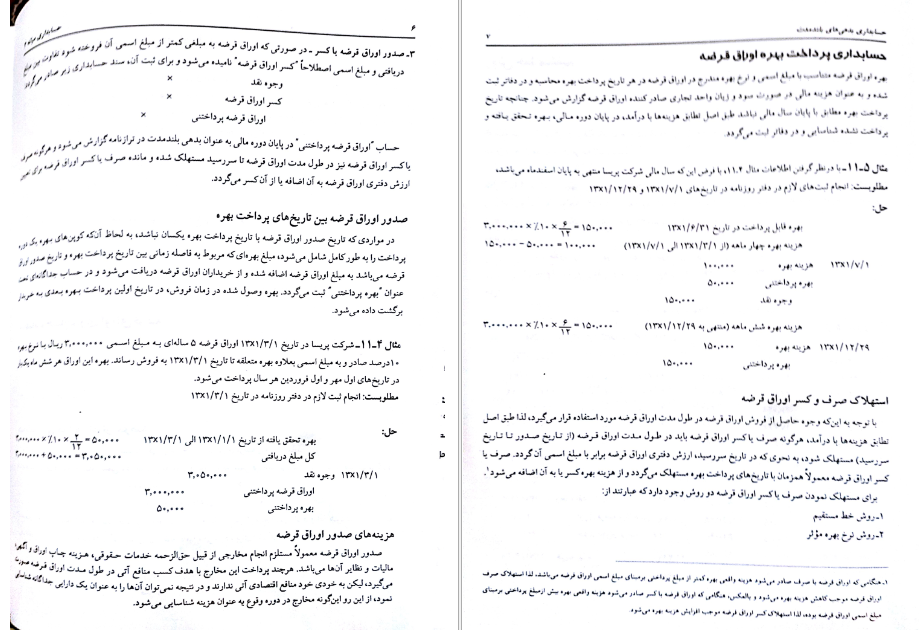 ۶
حسابداری میانه ۲
۳ـ صدور اوراق قرضه با کسر ـ در صورتی که اوراق قرضه به مبلغی کمتر از مبلغ اسمی آن فروخته شود تفاوت بین مبلغ
دریافتی و مبلغ اسمی اصطلاحاً "کسر اوراق قرضه" نامیده می‌شود و برای ثبت آن، سند حسابداری زیر صادر می‌گردد:
وجوه نقد ×
کسر اوراق قرضه ×
اوراق قرضه پرداختنی ×
حساب "اوراق قرضه پرداختنی" در پایان دوره مالی به عنوان بدهی بلندمدت در ترازنامه گزارش می‌شود و هرگونه صرف
یا کسر اوراق قرضه نیز در طول مدت اوراق قرضه تا سررسید مستهلک شده و مانده صرف یا کسر اوراق قرضه برای تعیین
ارزش دفتری اوراق قرضه به آن اضافه یا از آن کسر می‌گردد.
صدور اوراق قرضه بین تاریخ‌های پرداخت بهره
در مواردی که تاریخ صدور اوراق قرضه با تاریخ پرداخت بهره یکسان نباشد، به لحاظ آن‌که کوپن‌های بهره یک دوره
پرداخت را به طور کامل شامل می‌شود، مبلغ بهره‌ای که مربوط به فاصله زمانی بین تاریخ پرداخت بهره و تاریخ صدور اوراق
قرضه می‌باشد به مبلغ اوراق قرضه اضافه شده و از خریداران اوراق قرضه دریافت می‌شود و در حساب جداگانه‌ای تحت
عنوان "بهره پرداختنی" ثبت می‌گردد. بهره وصول شده در زمان فروش، در تاریخ اولین پرداخت بهره بعدی به خریدار
برگشت داده می‌شود.
مثال ۴ـ۱۱ـ شرکت پریسا در تاریخ ۱۳X۱/۳/۱ اوراق قرضه ۵ ساله‌ای به مبلغ اسمی ۳,۰۰۰,۰۰۰ ریال با نرخ بهره
۱۰درصد صادر و به مبلغ اسمی بعلاوه بهره متعلقه تا تاریخ ۱۳X۱/۳/۱ به فروش رساند. بهره این اوراق هر شش ماه یک‌بار
در تاریخ‌های اول مهر و اول فروردین هر سال پرداخت می‌شود.
مطلوبست: انجام ثبت لازم در دفتر روزنامه در تاریخ ۱۳X۱/۳/۱
حل:
بهره تحقق یافته از تاریخ ۱۳X۱/۱/۱ الی ۱۳X۱/۳/۱ ۳,۰۰۰,۰۰۰ × ٪۱۰ × ۲/۱۲ = ۵۰,۰۰۰
کل مبلغ دریافتی ۳,۰۰۰,۰۰۰ + ۵۰,۰۰۰ = ۳,۰۵۰,۰۰۰
۱۳X۱/۳/۱ وجوه نقد ۳,۰۵۰,۰۰۰
اوراق قرضه پرداختنی ۳,۰۰۰,۰۰۰
بهره پرداختنی ۵۰,۰۰۰
هزینه‌های صدور اوراق قرضه
صدور اوراق قرضه معمولاً مستلزم انجام مخارجی از قبیل حق‌الزحمه خدمات حقوقی، هزینه چاپ اوراق و آگهی،
مالیات و نظایر آن‌ها می‌باشد. هرچند پرداخت این مخارج با هدف کسب منافع آتی در طول مدت اوراق قرضه صورت
می‌گیرد، لیکن به خودی خود منافع اقتصادی آتی ندارند و در نتیجه نمی‌توان آن‌ها را به عنوان یک دارایی جداگانه شناسایی
نمود، از این رو این‌گونه مخارج در دوره وقوع به عنوان هزینه شناسایی می‌شود.
حسابداری بدهی‌های بلندمدت
۷
حسابداری پرداخت بهره اوراق قرضه
بهره اوراق قرضه متناسب با مبلغ اسمی و نرخ بهره مندرج در اوراق قرضه در هر تاریخ پرداخت بهره محاسبه و در دفاتر ثبت
شده و به عنوان هزینه مالی در صورت سود و زیان واحد تجاری صادر کننده اوراق قرضه گزارش می‌شود. چنانچه تاریخ
پرداخت بهره مطابق با پایان سال مالی نباشد طبق اصل تطابق هزینه‌ها با درآمد، در پایان دوره مالی، بهره تحقق یافته و
پرداخت نشده شناسایی و در دفاتر ثبت می‌گردد.
مثال ۵ـ۱۱ـ با در‌نظر‌گرفتن اطلاعات مثال ۱۱.۴، با فرض این که سال مالی شرکت پریسا منتهی به پایان اسفندماه می‌باشد،
مطلوبست: انجام ثبت‌های لازم در دفتر روزنامه در تاریخ‌های ۱۳X۱/۷/۱ و ۱۳X۱/۱۲/۲۹
حل:
بهره قابل پرداخت در تاریخ ۱۳X۱/۶/۳۱ ۳,۰۰۰,۰۰۰ × ٪۱۰ × ۶/۱۲ = ۱۵۰,۰۰۰
هزینه بهره چهار ماهه (از ۱۳X۱/۳/۱ الی ۱۳X۱/۷/۱) ۱۵۰,۰۰۰ − ۵۰,۰۰۰ = ۱۰۰,۰۰۰
۱۳X۱/۷/۱ هزینه بهره ۱۰۰,۰۰۰
بهره پرداختنی ۵۰,۰۰۰
وجوه نقد ۱۵۰,۰۰۰
هزینه بهره شش ماهه (منتهی به ۱۳X۱/۱۲/۲۹) ۳,۰۰۰,۰۰۰ × ٪۱۰ × ۶/۱۲ = ۱۵۰,۰۰۰
۱۳X۱/۱۲/۲۹ هزینه بهره ۱۵۰,۰۰۰
بهره پرداختنی ۱۵۰,۰۰۰
استهلاک صرف و کسر اوراق قرضه
با توجه به این‌که وجوه حاصل از فروش اوراق قرضه در طول مدت اوراق قرضه مورد استفاده قرار می‌گیرد، لذا طبق اصل
تطابق هزینه‌ها با درآمد، هرگونه صرف یا کسر اوراق قرضه باید در طول مدت اوراق قرضه (از تاریخ صدور تا تاریخ
سررسید) مستهلک شود، به نحوی که در تاریخ سررسید، ارزش دفتری اوراق قرضه برابر با مبلغ اسمی آن گردد. صرف یا
کسر اوراق قرضه معمولاً همزمان با تاریخ‌های پرداخت بهره مستهلک می‌گردد و از هزینه بهره کسر یا به آن اضافه می‌شود۱.
برای مستهلک نمودن صرف یا کسر اوراق قرضه دو روش وجود دارد که عبارتند از:
۱ـ روش خط مستقیم
۲ـ روش نرخ بهره مؤثر
۱ـ هنگامی که اوراق قرضه با صرف صادر می‌شود هزینه واقعی بهره کمتر از مبلغ پرداختی برمبنای مبلغ اسمی اوراق قرضه می‌باشد، لذا استهلاک صرف
اوراق قرضه موجب کاهش هزینه بهره می‌شود و بالعکس، هنگامی که اوراق قرضه با کسر صادر می‌شود هزینه واقعی بهره بیش از مبلغ پرداختی برمبنای
مبلغ اسمی اوراق قرضه بوده، لذا استهلاک کسر اوراق قرضه موجب افزایش هزینه بهره می‌شود.